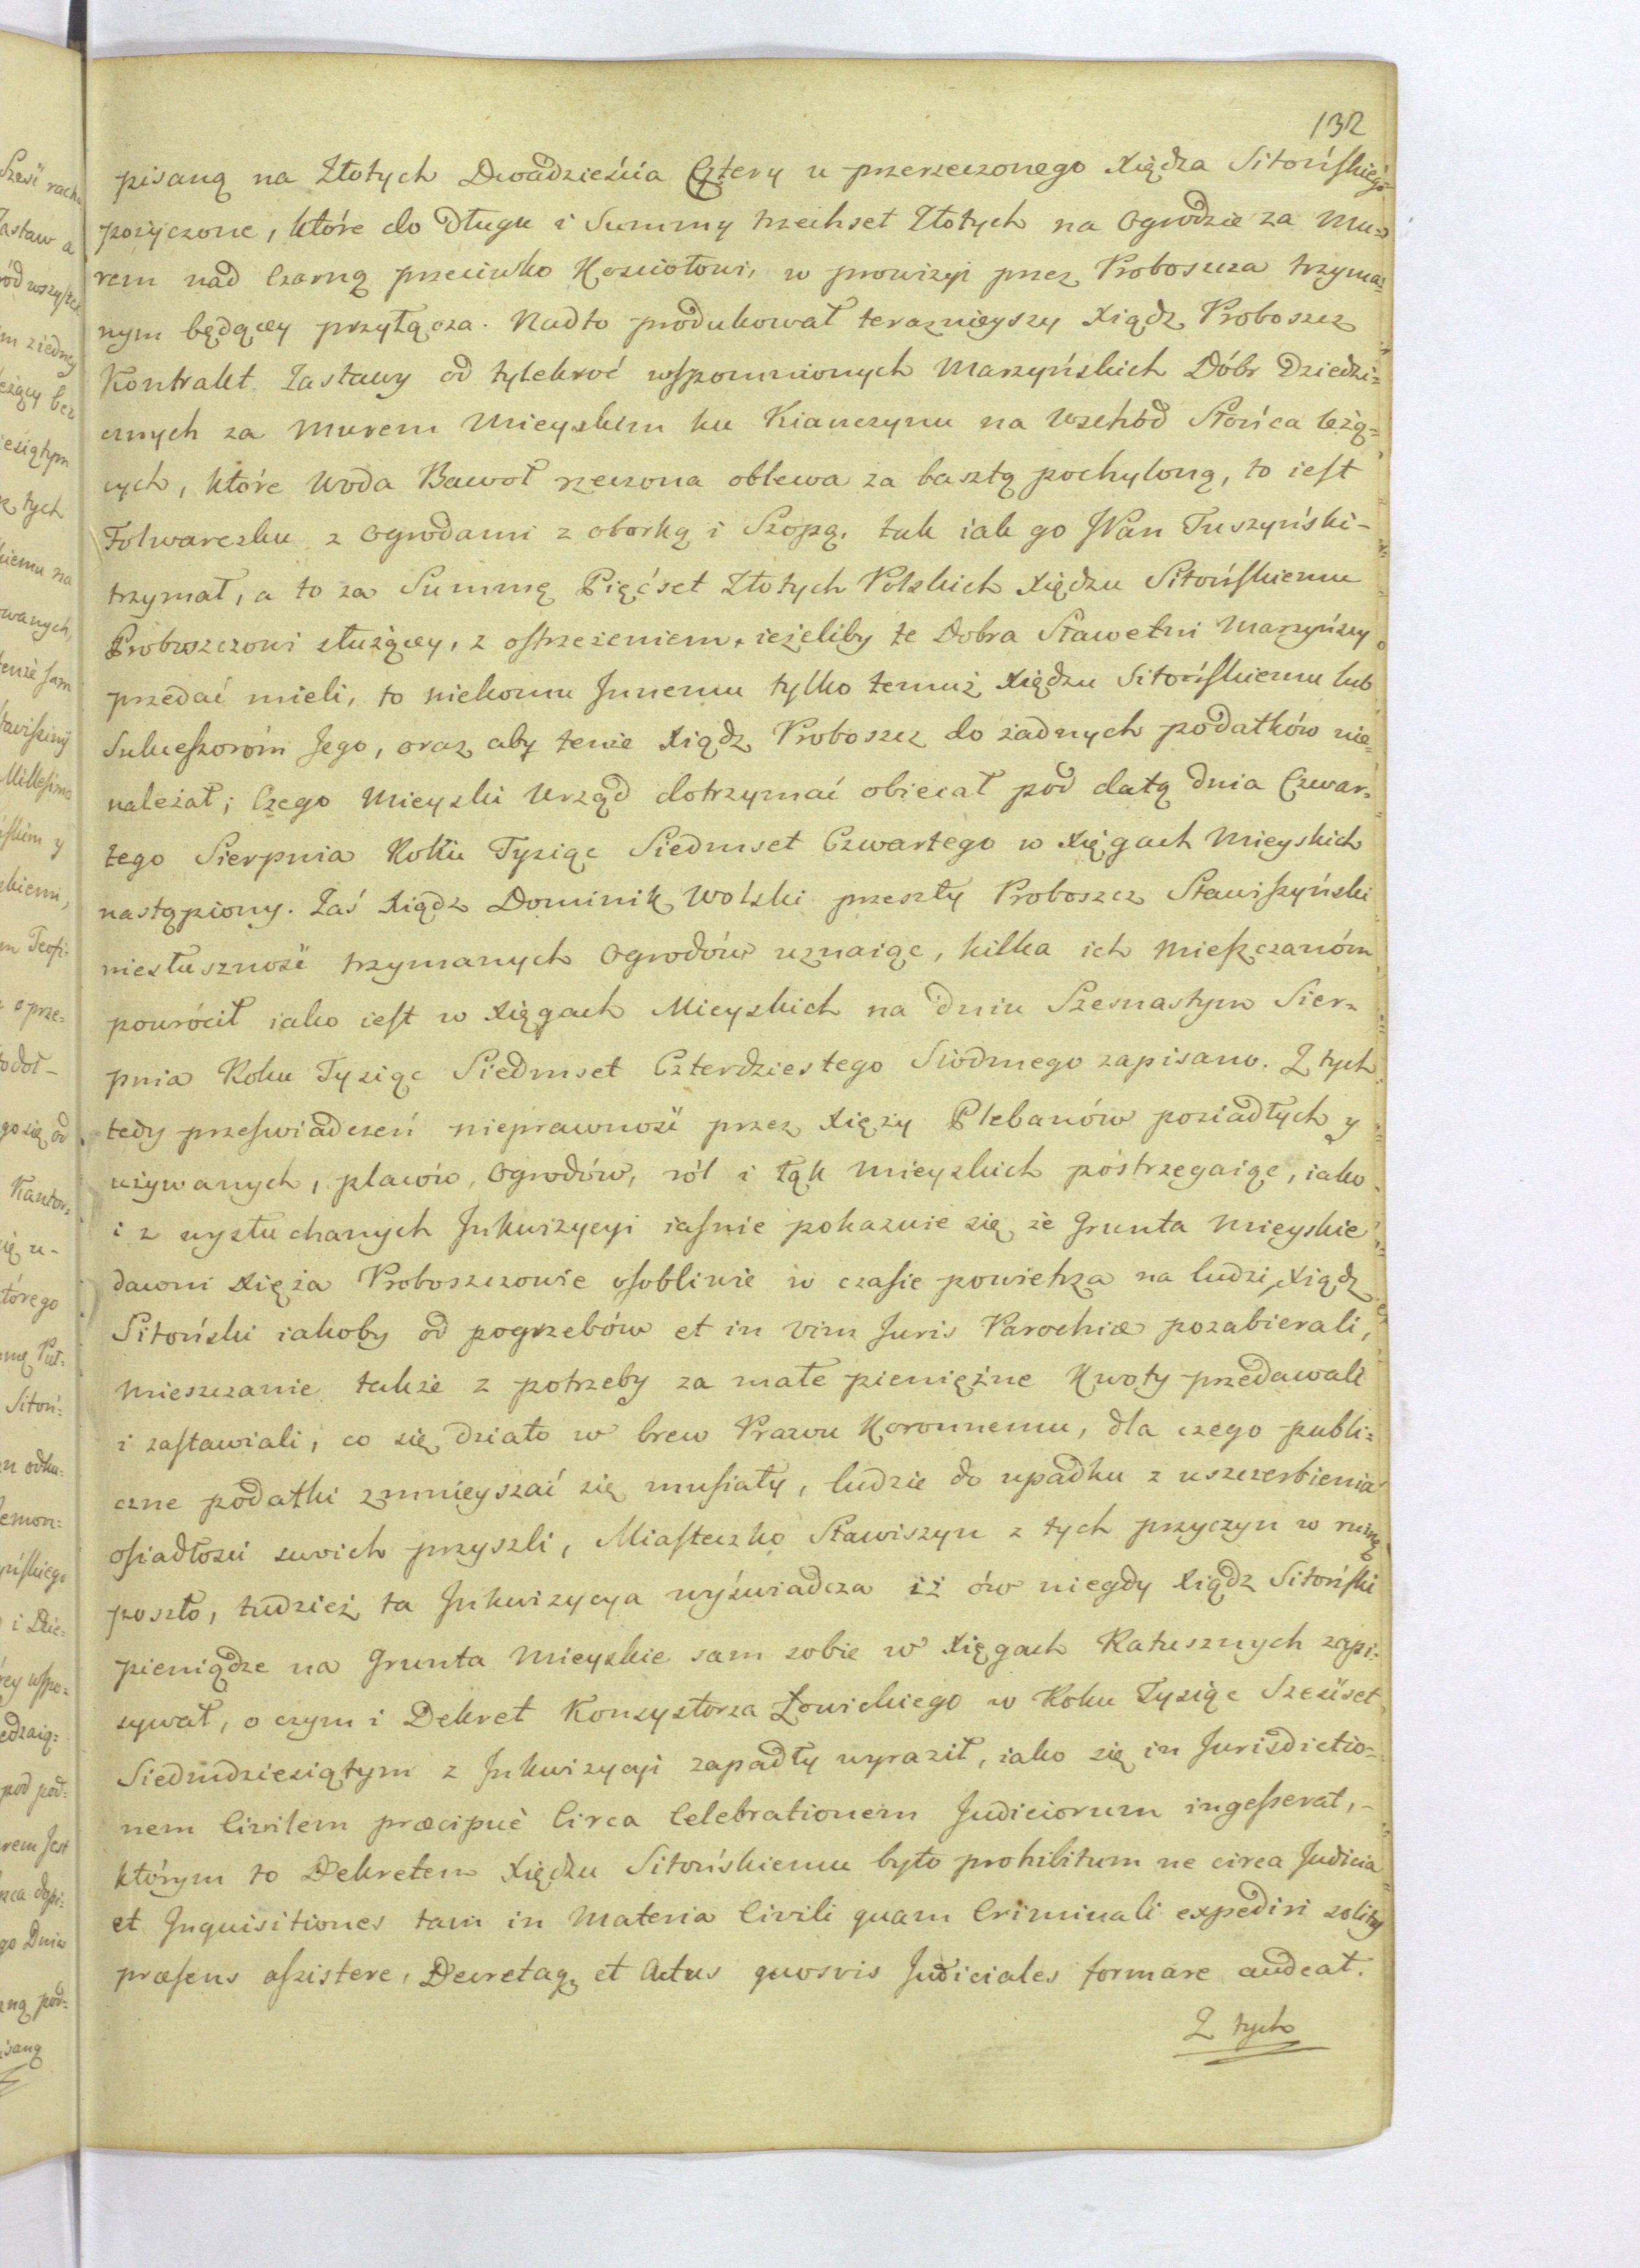 132
pisaną na Złotych Dwadzieścia Cztery u przerzeczonego Xiędza Sitońskiego
pożyczone, które do długu i Summy trzechset Złotych na Ogrodzie za Mu=
rem nad Czarną przeciwko Kosciołowi, w prowizyi przez Proboszcza trzyma=
nym będącey przyłącza. Nadto produkował teraznieyszy Xiądz Proboszcz
Kontrakt Zastawy od tylekroć wspomnionych Marzyńskich Dóbr Dziedzi=
cznych za Murem Mieyskim ku Kianczynu na Wschód Słońca leżą=
cych, które Woda Bawoł rzeczona oblewa za basztą pochyloną, to iest
Folwarczku z Ogrodami z oborką i Szopą, tak iak go JPan Tuszyński-
trzymał, a to za Summę Pięćset Złotych Polskich Xiędzu Sitońskiemu
Proboszczowi służącey, z ostrzeżeniem, ieżeliby te Dobra Sławetni Marzyńscy
przedać mieli, to niekomu Jnnemu tylko temuż Xiędzu Sitońskiemu lub
Sukcessoróm Jego, oraz aby tenże Xiądz Proboszcz do żadnych podatków nie=
należał; Czego Mieyski Urząd dotrzymać obiecał pod datą dnia Czwar=
tego Sierpnia Roku Tysiąc Siedmset Czwartego w Xięgach Mieyskich
nastąpiony. Zaś Xiądz Dominik Wolski przeszły Proboszcz Stawiszyński
niesłuszność trzymanych Ogrodów uznaiąc, kilka ich Mieszczanóm
powrócił iako iest w Xięgach Mieyskich na dniu Szesnastym Sier=
pnia Roku Tysiąc Siedmset Czterdziestego Siódmego zapisano. Z tych
tedy przeświadczeń nieprawność przez Xięży Plebanów posiadłych y
używanych, placów, Ogrodów, ról i łąk Mieyskich postrzegaiąc, iako
i z wysłuchanych Jnkwizycyi iaśnie pokazuie się że Grunta Mieyskie
dawni Xięża Proboszczowie osobliwie w czasie powietrza na ludzi, Xiądz
Sitoński iakoby od pogrzebów et in vim Juris Parochiæ pozabierali,
Mieszczanie także z potrzeby za małe pieniężne Kwoty przedawali
i zastawiali, co się działo w brew Prawu Koronnemu, dla czego publi=
czne podatki zmnieyszać się musiały, ludzie do upadku z uszczerbienia
osiadłości swoich przyszli, Miasteczko Stawiszyn z tych przyczyn w ruinę
poszło, tudzież ta Jnkwizycya wyświadcza iż ów niegdy Xiądz Sitoński
pieniądze na Grunta Mieyskie sam sobie w Xięgach Ratusznych zapi=
sywał, o czym i Dekret Konsystorza Łowickiego w Roku Tysiąc Sześćset
Siedmdziesiątym z Jnkwizycyi zapadły wyraził, iako się in Jurisdictio=
nem Civilem præcipuè Circa Celebrationem Judiciorum ingesserat,-
którym to Dekretem Xiędzu Sitońskiemu było prohibitum ne circa Judicia
et Jnquisitiones tam in Materia Civili quam Criminali expediri solitas
præsens assistere, Decretaq; et Actus quosvis Judiciales formare audeat.
Z tych